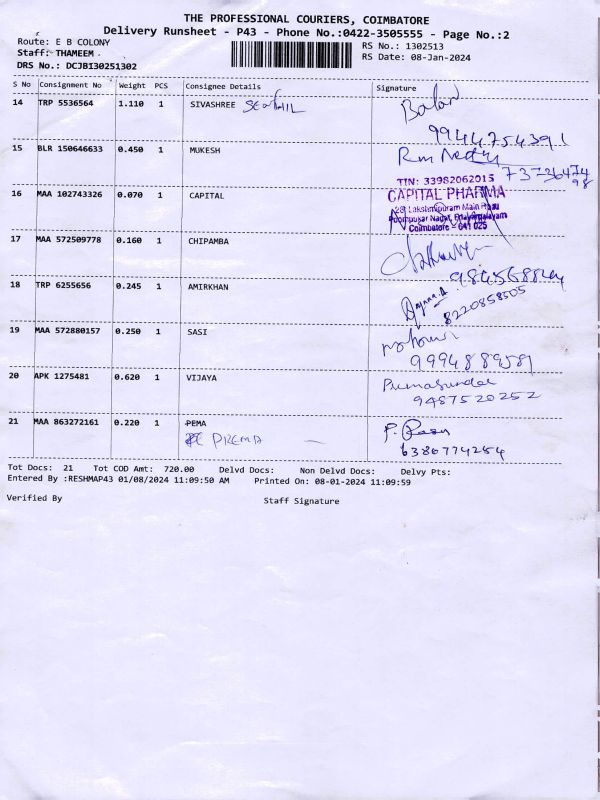 THE PROFESSIONAL COURIERS, COIMBATORE
Delivery Runsheet - P43 - Phone No.:0422-3505555 - Page No.:2
Route: E B COLONY
RS No.: 1302513
Staff: THAMEEM
RS Date: 08-Jan-2024
DRS No.: DCJBI30251302
S No Consignment No Weight PCS Consignee Details Signature
14 TRP 5536564 1.110 1 SIVASHREE SENTHIL Balan
9944754391
15 BLR 150646633 0.450 1 MUKESH
TIN: 33982062015
16 MAA 102743326 0.070 1 CAPITAL CAPITAL PHARMA
28 Lakshmipuram Main Road
Poompukar Nagar, Edayarpalayam
Coimbatore - 641 025
17 MAA 572509778 0.160 1 CHIPAMBA
18 TRP 6255656 0.245 1 AMIRKHAN
8220858505
19 MAA 572880157 0.250 1 SASI
9994889589
20 APK 1275481 0.620 1 VIJAYA
9487520252
21 MAA 863272161 0.220 1 PEMA
PREMA
6380774254
Tot Docs: 21 Tot COD Amt: 720.00 Delvd Docs: Non Delvd Docs: Delvy Pts:
Entered By :RESHMAP43 01/08/2024 11:09:50 AM Printed On: 08-01-2024 11:09:59
Verified By Staff Signature